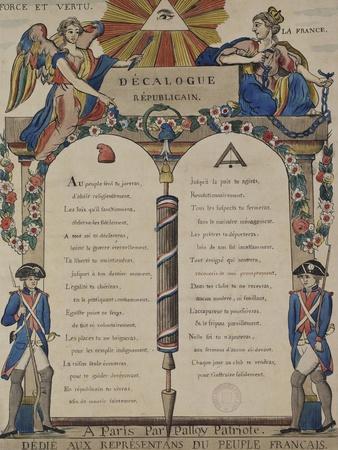 FORCE ET VERTU.
LA FRANCE.
DÉCALOGUE
RÉPUBLICAIN.
Au peuple seul tu jureras,
d'obéir religieusement.
Les loix qu'il sanctionnera,
observeras fidèlement.
A tout roi tu déclareras,
haine & guerre éternellement.
Ta liberté tu maintiendras,
jusqu'à ton dernier moment,
L'égalité tu chériras,
en la pratiquant constamment.
Egoïste point ne feras,
de fait ni volontairement.
Les places tu ne brigueras,
pour les remplir indignement.
La raison seule écouteras,
pour te guider dorénavant.
En républicain tu vivras,
afin de mourir saintement.
Jusqu'à la paix tu agiras,
Révolutionnairement.
Tous les suspects tu fermeras,
sans le moindre ménagement.
Les prêtres tu déporteras,
loin de nos
Tout émigré qui rentrera,
raccourcis-le moi promptement.
Dans tes clubs tu ne recevras,
aucun modéré, ni feuillant,
L'accapareur tu poursuivras,
& le fripon pareillement.
Noble foi tu n'ajouteras,
aux sermens
Chaque jour au club te rendras,
pour t'instruire solidement.
A Paris Par Palloy Patriote.
DÉDIÉ AUX REPRÉSENTANS DU PEUPLE FRANÇAIS.